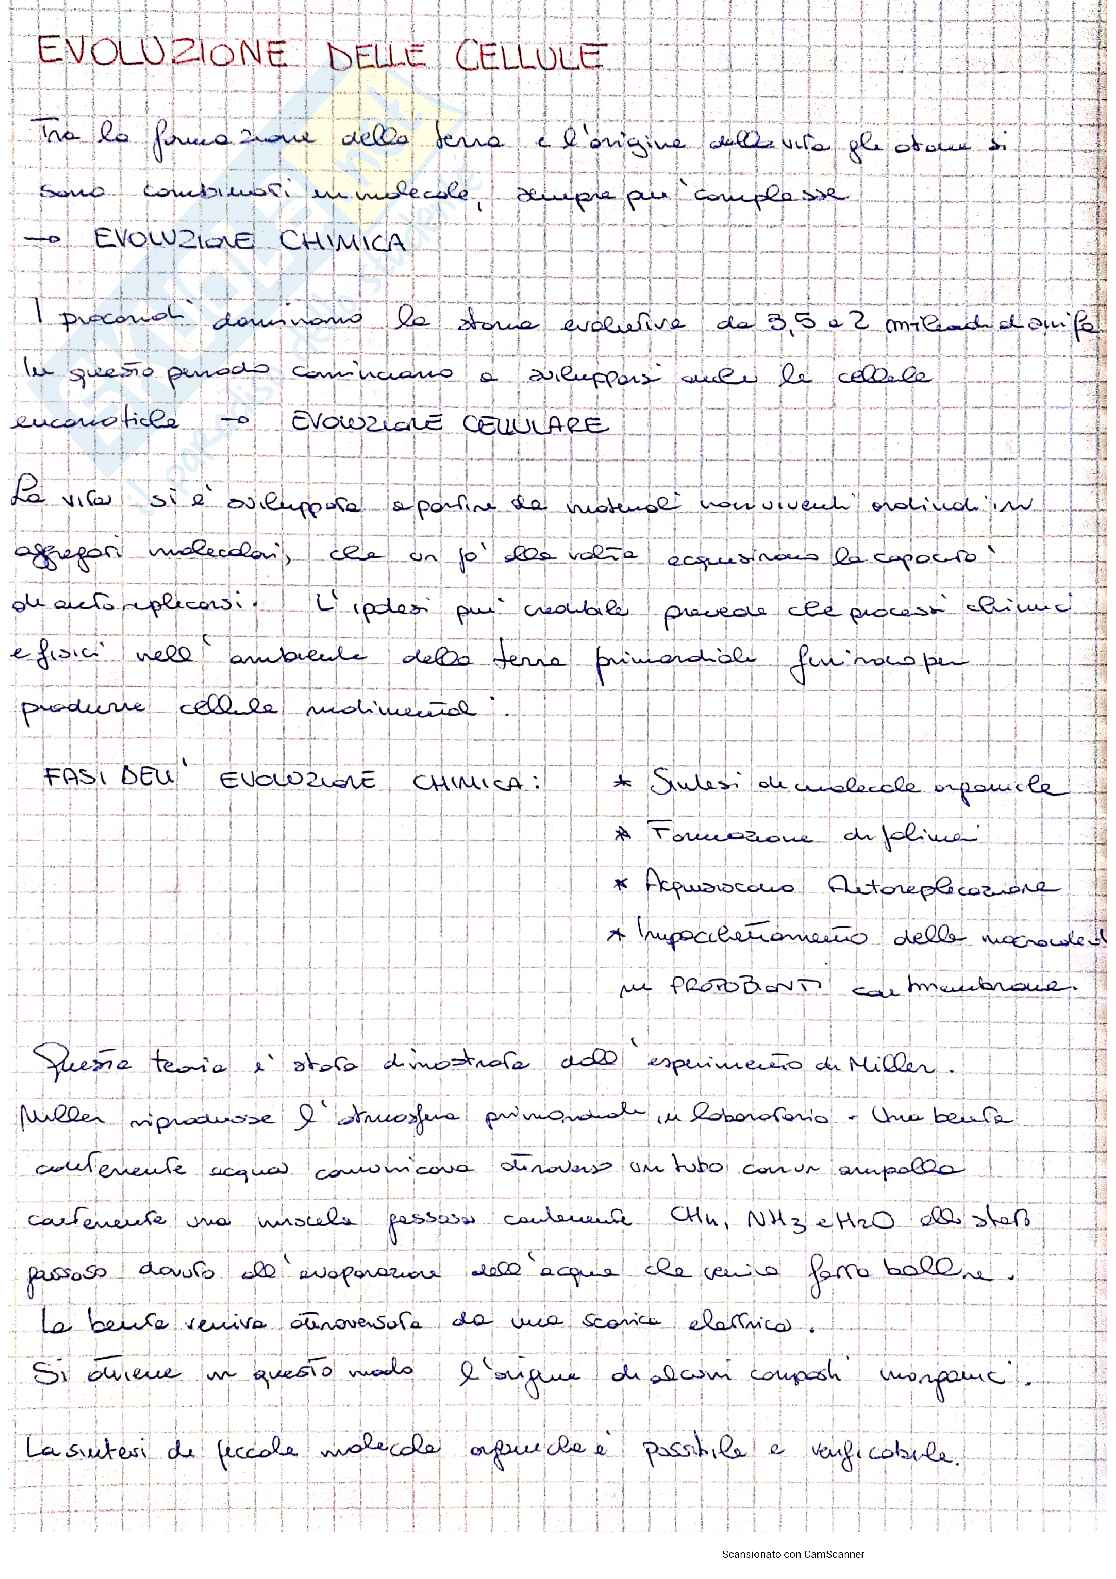 EVOLUZIONE DELLE CELLULE
Tra la formazione della terra e l'origine della vita gli atomi si
sono combinati in molecole, sempre più complesse
→ EVOLUZIONE CHIMICA
I procarioti dominano la storia evolutiva da 3,5 a 2 miliardi di anni fa
In questo periodo cominciano a svilupparsi anche le cellule
eucariotiche → EVOLUZIONE CELLULARE
La vita si è sviluppata a partire da materiali non viventi ordinati in
aggregati molecolari, che un po' alla volta acquisirono la capacità
di autoreplicarsi. L'ipotesi più credibile prevede che processi chimici
e fisici nell'ambiente della terra primordiale finirono per
produrre cellule rudimentali.
FASI DELL' EVOLUZIONE CHIMICA: * Sintesi di molecole organiche
* Formazione di polimeri
* Acquisiscono Autoreplicazione
* Impacchettamento delle macromolecole
in PROTOBIONTI con membrane.
Questa teoria è stata dimostrata dall'esperimento di Miller.
Miller riprodusse l'atmosfera primordiale in laboratorio. Una beuta
contenente acqua comunicava attraverso un tubo con un ampolla
contenente una miscela gassosa contenente CH4, NH3 e H2O allo stato
gassoso dovuto all'evaporazione dell'acqua che veniva fatta bollire.
La beuta veniva attraversata da una scarica elettrica.
Si ottiene in questo modo l'origine di alcuni composti inorganici.
La sintesi di piccole molecole organiche è possibile e verificabile.
Scansionato con CamScanner